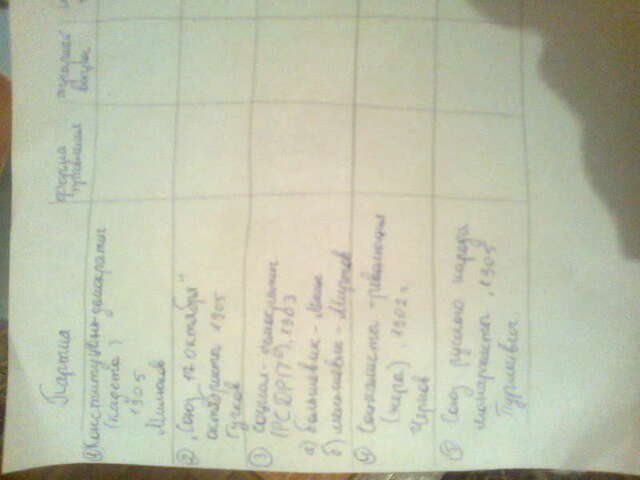 Партия
форма правления
аграрный вопрос
① Конституц. демократы
(кадеты)
1905
Милюков
② "Союз 17 октября"
октябристы 1905
Гучков
③ социал-демократы
(РСДРП), 1903
а) большевик - Ленин
б) меньшевик - Мартов
④ Социалисты-революционеры
1902 г.
Чернов
⑤ Союз русского народа
монархисты, 1905
Пуришкевич.